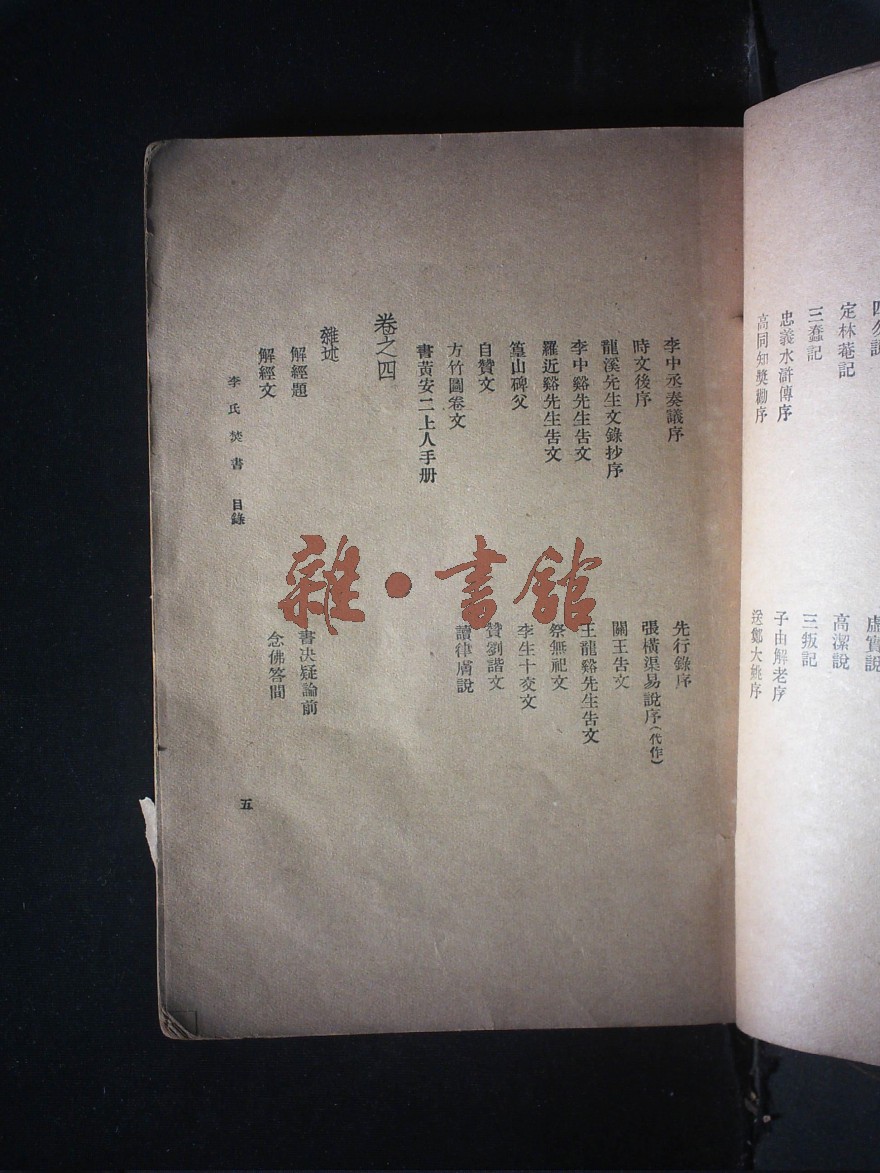 四勿說
虛實說
定林菴記
高潔說
三蠢記
三叛記
忠義水滸傳序
子由解老序
高同知獎勸序
送鄭大姚序
李中丞奏議序
先行錄序
時文後序
張橫渠易說序(代作)
龍溪先生文錄抄序
關王告文
李中谿先生告文
王龍谿先生告文
羅近谿先生告文
祭無祀文
篁山碑父
李生十交文
自贊文
贊劉諧文
方竹圖卷文
讀律膚說
書黃安二上人手册
卷之四
雜述
解經題
書決疑論前
解經文
念佛答問
李氏焚書 目錄
五
雜·書館